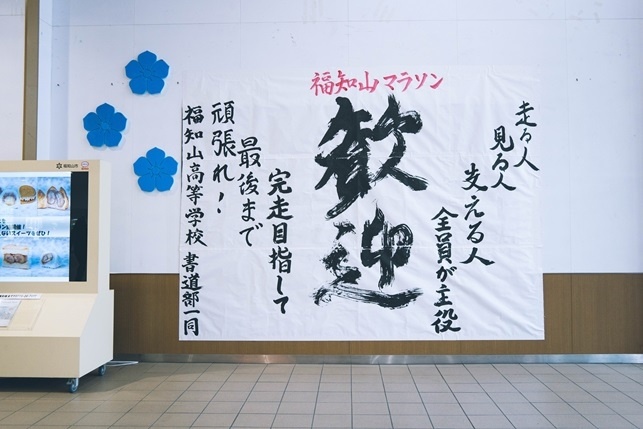 福知山マラソン
歓迎
走る人
見る人
支える人
全員が主役
完走目指して
最後まで
頑張れ！
福知山高等学校 書道部一同
福知山市